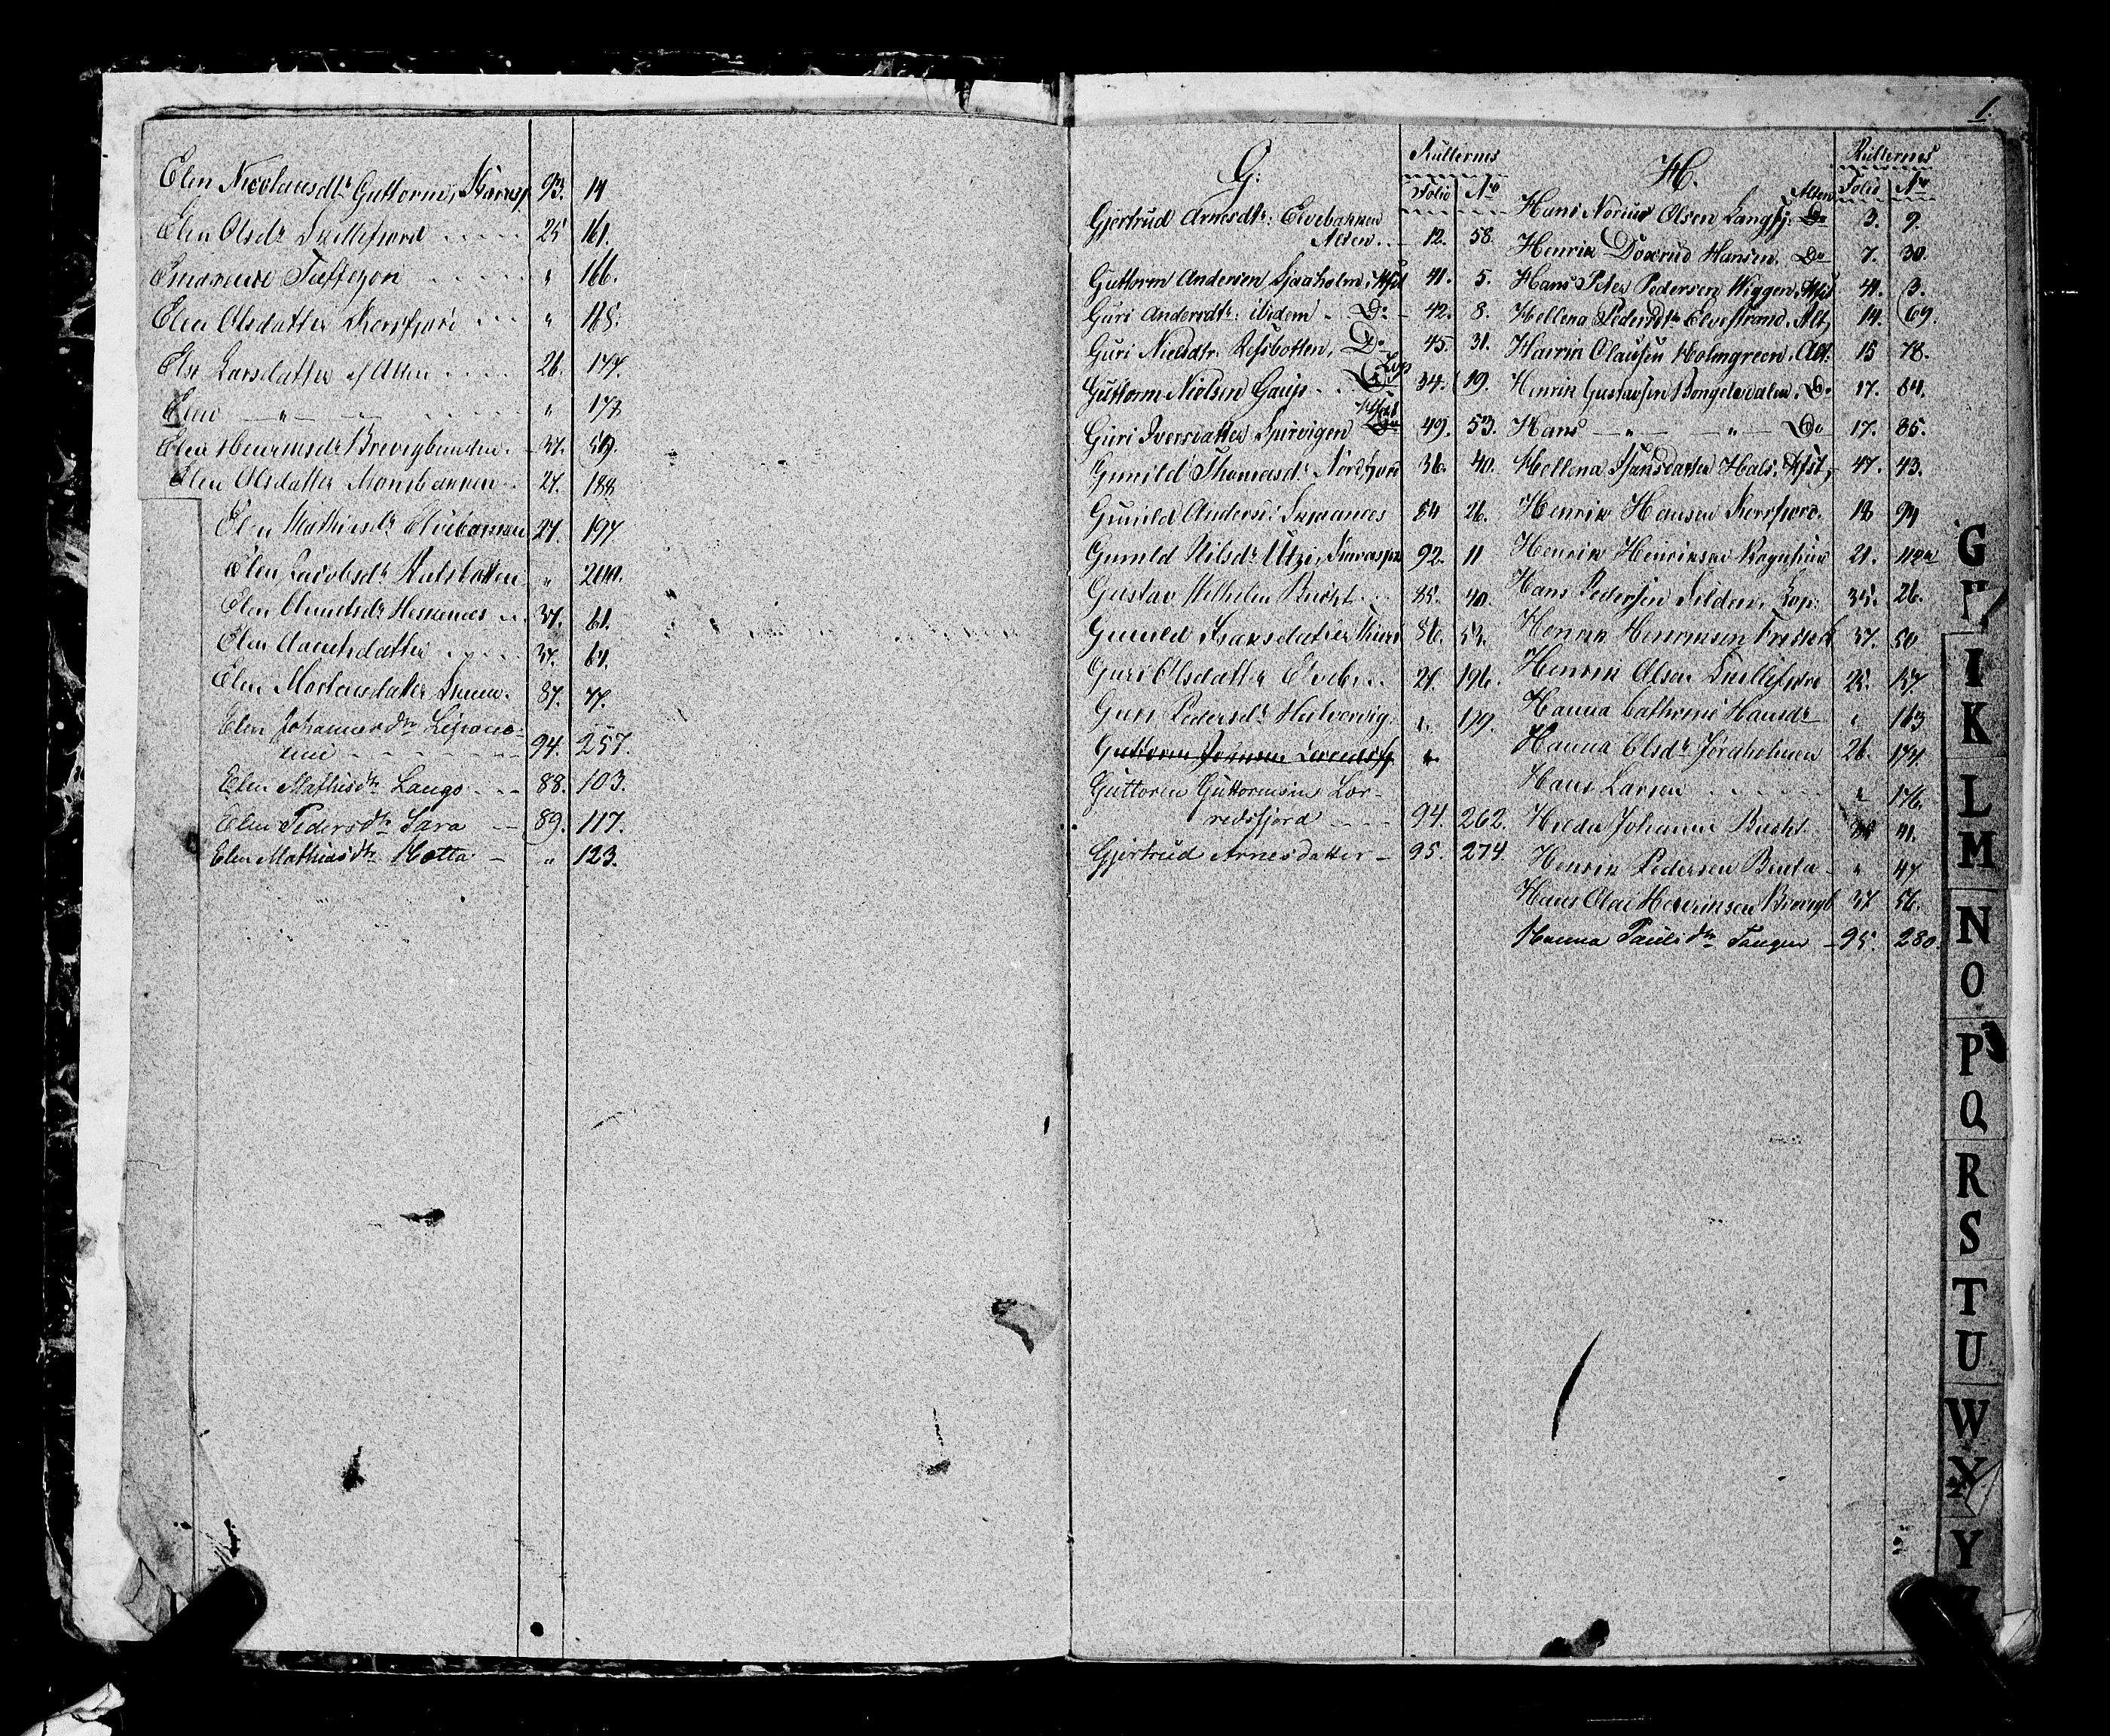 Elen Nicolausdtr Guttorm, Karasj 93. 14
Elen Olsdr Skillefjord 25 161.
Emerense Tuffejon " 166.
Elen Olsdatter Korsfjord " 168.
Else Larsdatter af Alten 26. 177.
Elen — " — " 178
Elen Henriksdr Brevigbunden 37. 59.
Elen Olsdatter Monsbakken 27. 188
Elen Mathisdr Elvebakken 27. 197
Elen Jacobsdr Rafsbotten " 200.
Elen Amundsdr Heskenes 37. 61.
Elen 37. 64.
Elen Mortensdatter 87. 77.
Elen Johannesdtr
94. 257.
Elen Mathisdtr Lango 88. 103.
Elen Pedersdtr Sara 89. 117.
Elen Mathisdtr Hætta — " 123.
1.
G.
Rullernes
Folio No
Gjertrud Arnesdtr: Elvebakken
Alten 12. 58.
Guttorm Andersen Sjaaholm, Kfsd 41. 5.
Guri Andersdtr: ibidem Do 42. 8.
Guri Nielsdtr. Refsbotten, Do 45. 31.
Guttorm Nielsen Gaup Lop 34. 19.
Guri Iversdatter Spirvigen Do 49. 53.
Gunild Thomasdr Nordfjord 36. 40.
Gunild Andersd: 84 26.
Gunild Nilsdr Utzi, Karasjok 92. 11
Gustav Wilhelm Bucht 85. 40.
Gunild Isaksdatter 86. 53.
Guri Olsdatter Elveb. 27. 196.
Guri Pedersdr " 179.
Guttorm
Guttorm Guttormsen Ler-
redsfjord 94. 262.
Gjertrud Arnesdatter — 95. 274.
H.
Rullernes
Folio No
Alten
Hans Norius Olsen Langfj. Do 3. 9.
Henrik Doxrud Hansen. Do 7. 30.
Hans Peter Pedersen Wiggen, Kfsd 41. 3.
Hellena Pedersdtr Elvestrand. Alt, 14. 69.
Henrik Clausen Holmgreen, Alt. 15 78.
Henrik Gustavsen Bongelvdalen, Do 17. 84.
Hans — " — " — Do 17. 85.
Hellena Hansdatter Hals, Kfsd, 47. 43.
Henrik Hansen Korsfjord. 18 94
Henrik Henriksen 21. 112a
Hans Pedersen Silden, Lop. 35. 26.
Henrik Henriksen 37. 50
Henrik Olsen Skillefjord 25. 157.
Hanna Cathrine Hansdr " 163
Hanna Olsdr Jordholmen 26. 174.
Hans Larsen " 176.
Hilda Johanne Bucht 85 41.
Henrik Pedersen Beuta " 47
Hans Olai Henriksen Brevigb 37 56.
Hanna Paulsdtr Tangen — 95. 280.
G
I
K
L
M
N
O
P
Q
R
S
T
U
W
X
Y